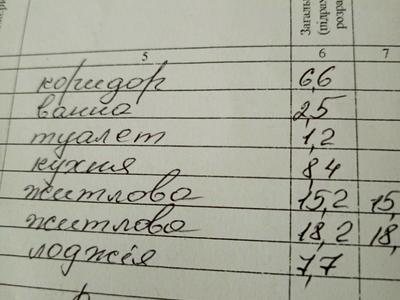 Загаль
(підра
розра
5 6 7
коридор 6,6
ванна 2,5
туалет 1,2
кухня 8,4
житлова 15,2 15,
житлова 18,2 18,
лоджія 7,7